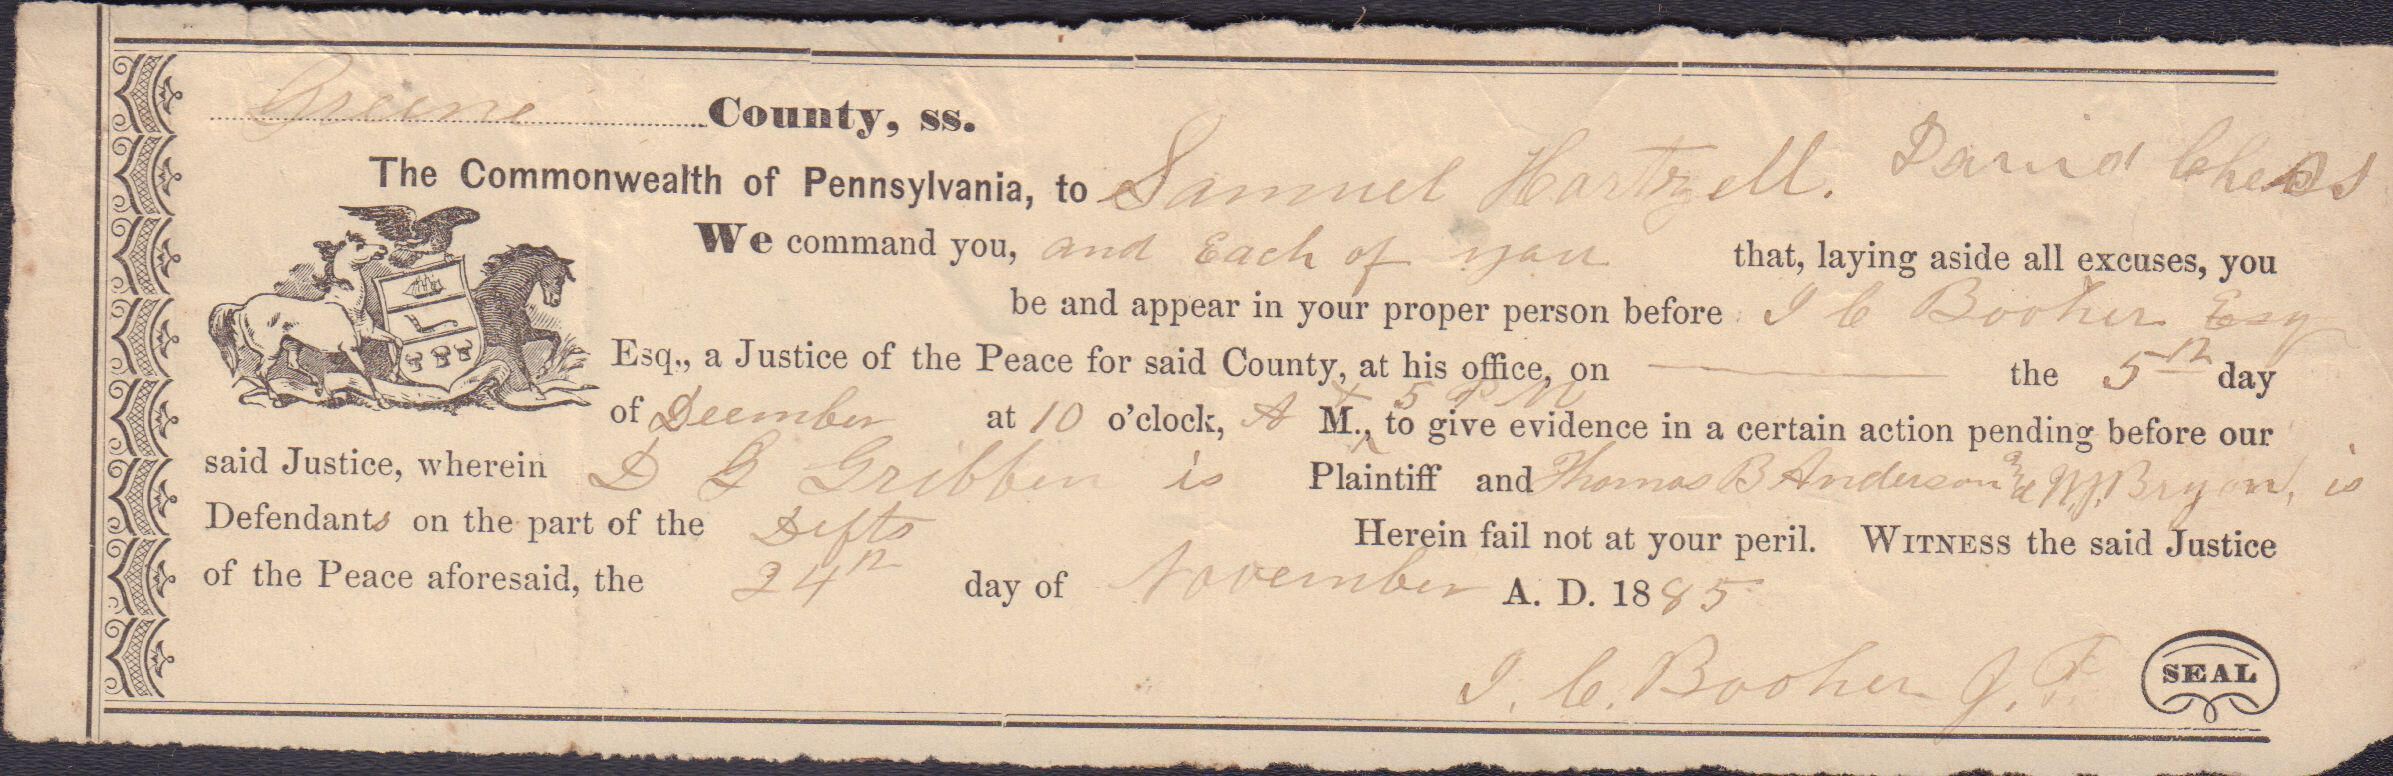 Greene County, ss.
The Commonwealth of Pennsylvania, to Samuel Hartzell. David
We command you, and Each of you that, laying aside all excuses, you
be and appear in your proper person before I C Booher Esq
Esq., a Justice of the Peace for said County, at his office, on the 5th day
of Deember at 10 o'clock, A M., + 5 P M to give evidence in a certain action pending before our
said Justice, wherein D G Gribben is Plaintiff and Thomas B Anderson and Bryan, is
Defendants on the part of the Defts Herein fail not at your peril. WITNESS the said Justice
of the Peace aforesaid, the 24th day of November A. D. 1885
I. C. Booher J. P.
SEAL